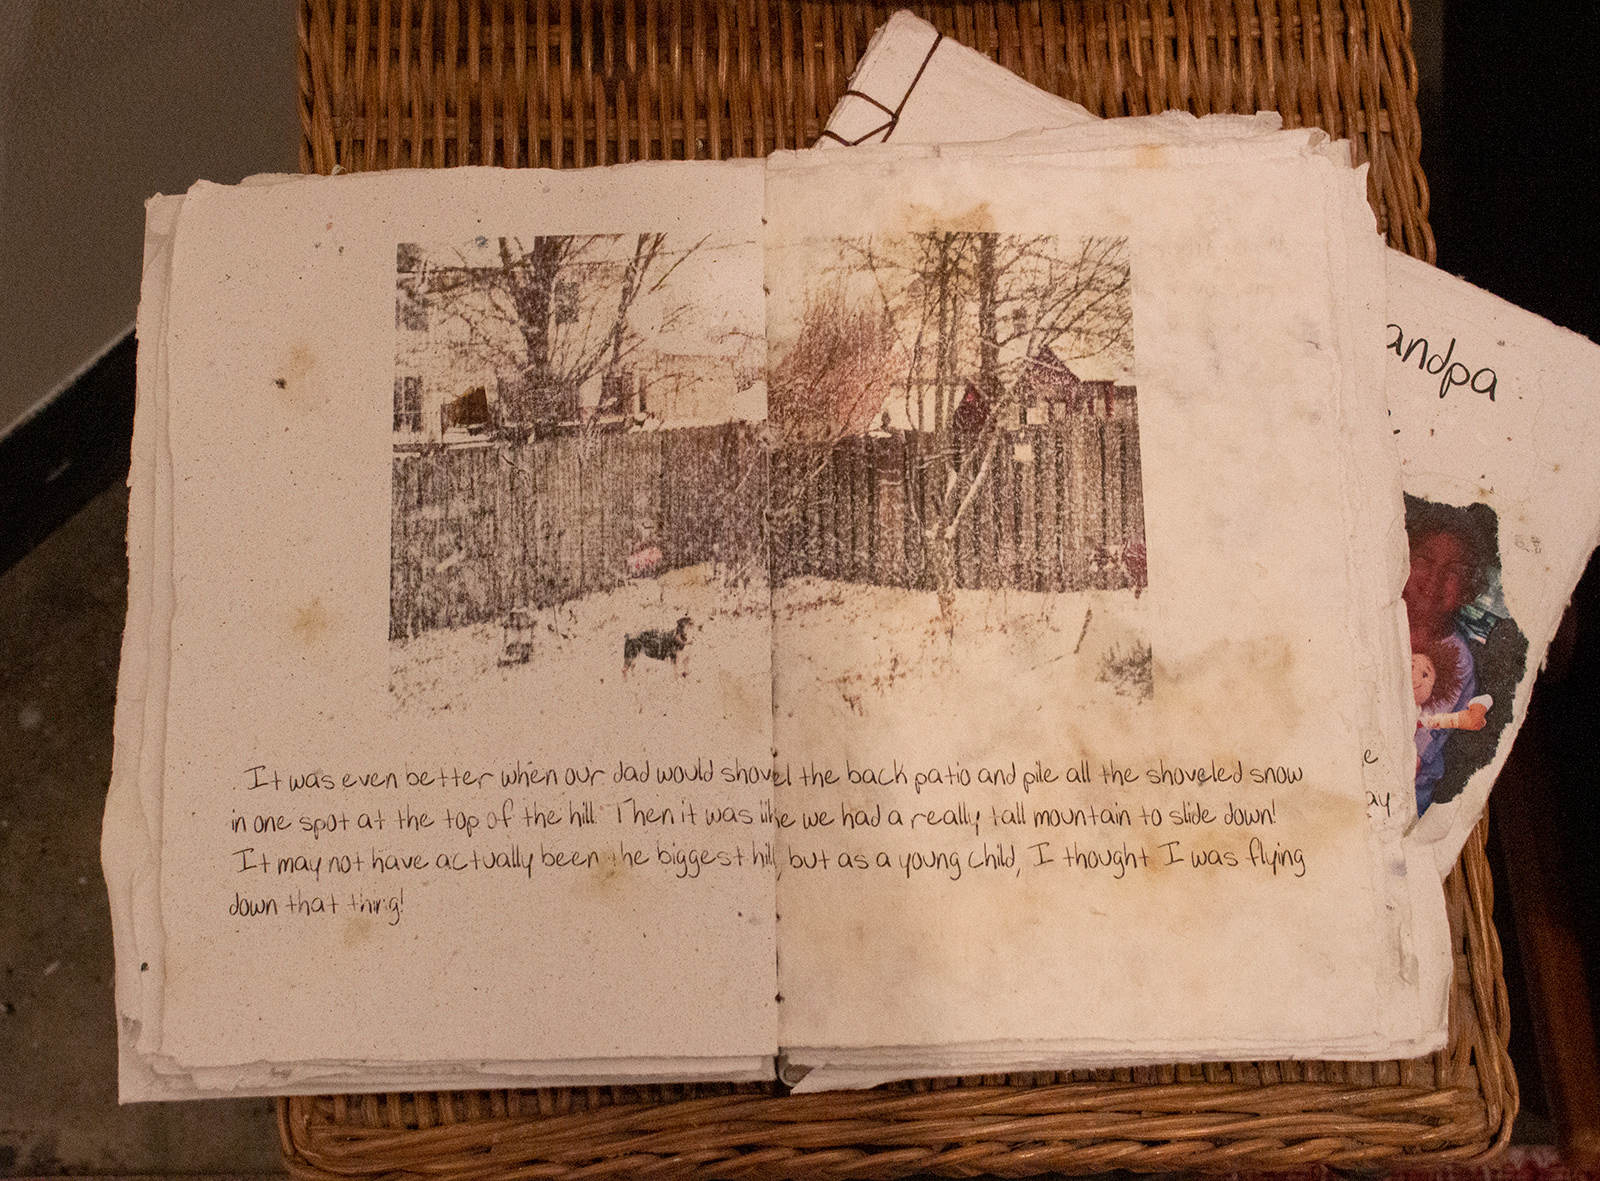 It was even better when our dad would shovel the back patio and pile all the shoveled snow
in one spot at the top of the hill. Then it was like we had a really tall mountain to slide down!
It may not have actually been the biggest hill, but as a young child, I thought I was flying
down that thing!
andpa
e
ay